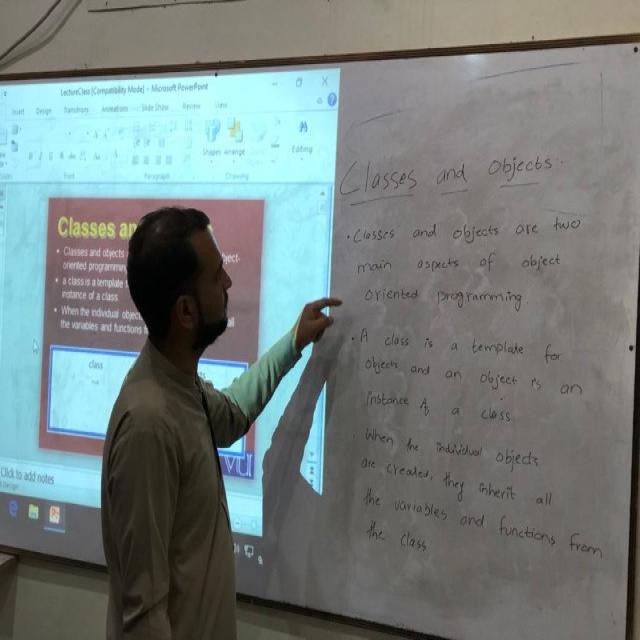 LectureClass [Compatibility Mode] - Microsoft PowerPoint
Insert Design Transitions Animations Slide Show Review View
Shapes Arrange Editing
Font Paragraph Drawing
Classes an
• Classes and objects ject-
oriented programmi
• a class is a template
instance of a class
• When the individual objec all
the variables and functions
class
Click to add notes
Classes and Objects:
• Classes and objects are two
main aspects of object
oriented programming
• A class is a template for
objects and an object is an
instance of a class
. When the individual objects
are created, they inherit all
the variables and functions from
the class